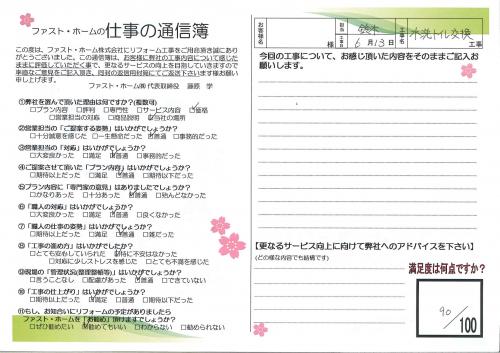 ファスト・ホームの仕事の通信簿
この度は、ファスト・ホーム株式会社にリフォーム工事をご用命頂き誠にあり
がとうございました。この通信簿は、お客様に弊社の工事内容について感じた
ままに評価していただく事で、更なるサービスの向上を目指していきますので
率直なご意見をご記入頂き、同封の返信用封筒にてご返送下さいます様お願い
申し上げます。
ファスト・ホーム㈱ 代表取締役 藤原 学
①弊社を選んで頂いた理由は何ですか?(複数可)
□プラン内容 □評判 □専門性 □サービス内容 □価格
□営業担当の対応 □商品説明 □会社の場所
②営業担当の「ご提案する姿勢」はいかがでしょうか?
□十分誠意を感じた □一生懸命だった □普通 □事務的だった
③営業担当の「対応」はいかがでしょうか?
□大変良かった □満足 □普通 □事務的だった
④ご提案させて頂いた「プラン内容」はいかがでしょうか?
□期待以上だった □満足 □普通 □期待以下だった
⑤プラン内容に「専門家の意見」はありましたでしょうか?
□かなりあった □十分あった □普通 □殆んどなかった
⑥「職人の対応」はいかがでしょうか?
□大変良かった □満足 □普通 □良くなかった
⑦「職人の仕事の姿勢」はいかがでしょうか?
□期待以上だった □満足 □普通 □雑だった
⑧「工事の進め方」はいかがでしたか?
□とても安心していられた □特に不安はなかった
□対応に少しストレスを感じた □とても不満を感じた
⑨現場の「管理状況(整理整頓等)」はいかがでしょうか?
□言うことなし □配慮があった □普通 □できていない
⑩「工事の仕上がり」はいかがでしょうか?
□期待以上だった □満足 □普通 □期待以下だった
⑪もし、お知合いにリフォームの予定がありましたら
ファスト・ホームを「お勧め」頂けますでしょうか?
□ぜひ勧めたい □勧めてもいい □わからない □勧められない
お客様名
担当
鈴木
工期
6月13日
工事名
水洗トイレ交換
工事
今回の工事について、お感じ頂いた内容をそのままご記入お
願いします。
【更なるサービス向上に向けて弊社へのアドバイスを下さい】
(どの様な内容でも結構です)
満足度は何点ですか?
90
/100